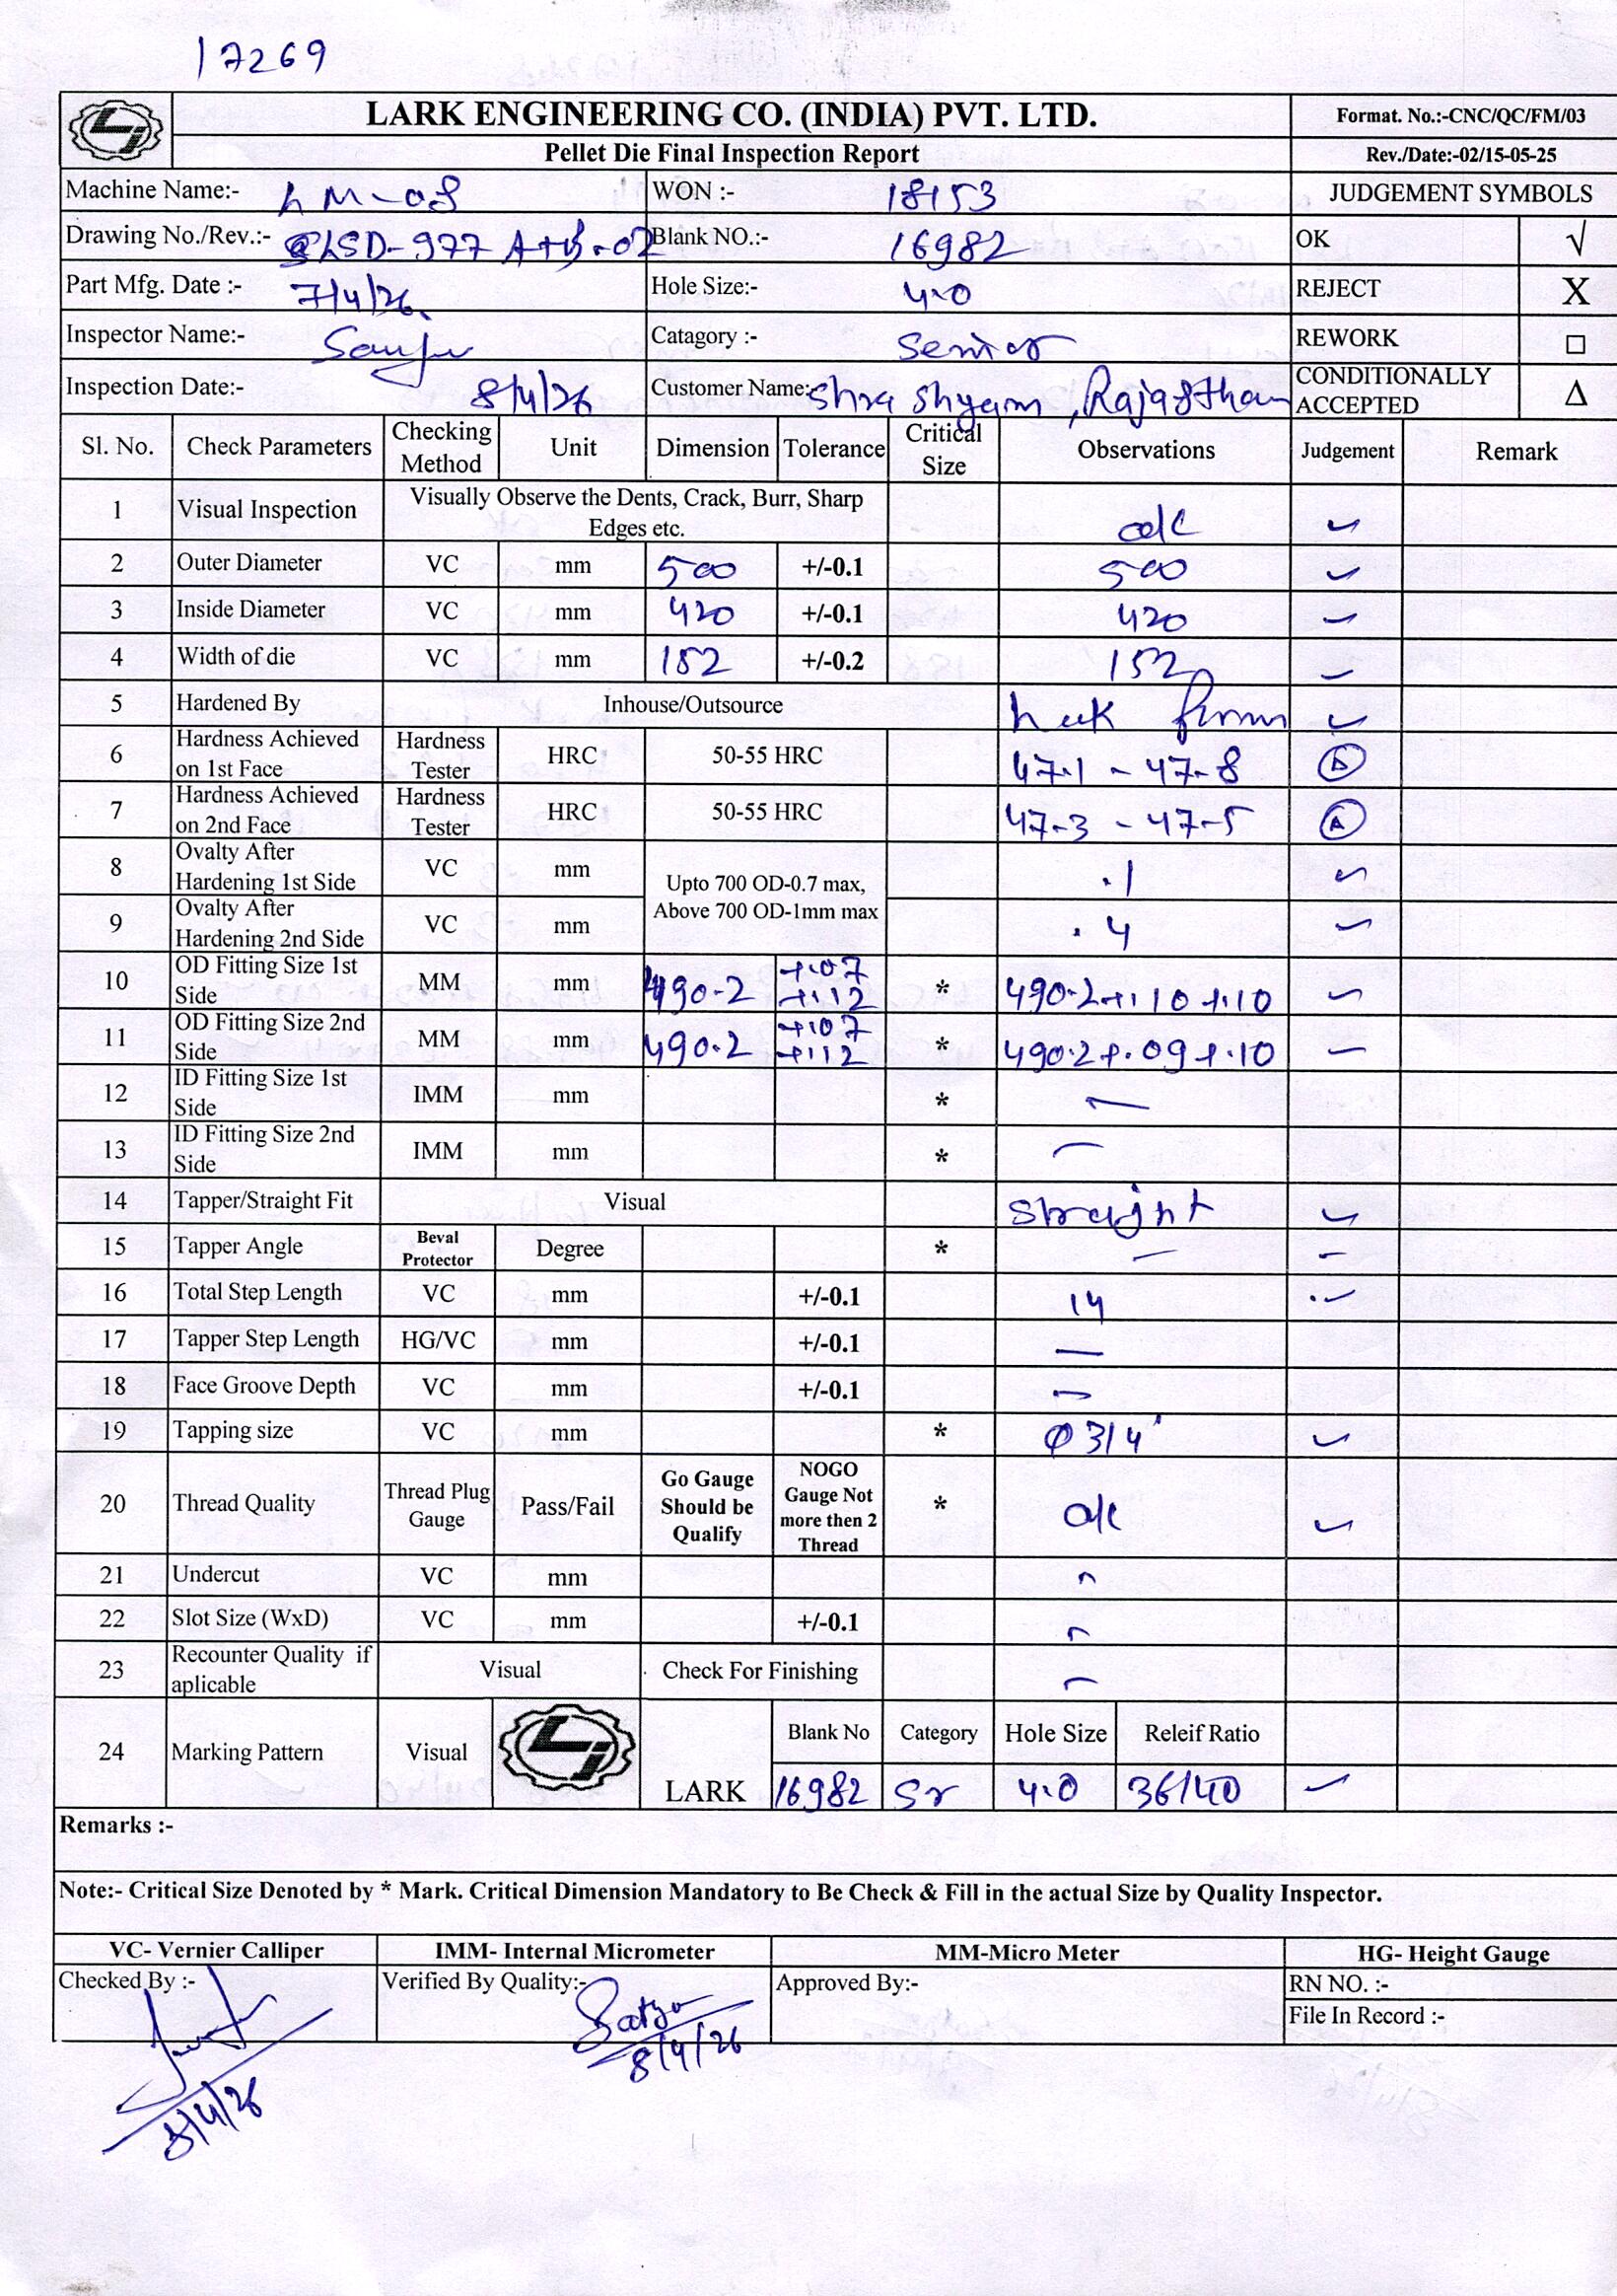 17269
LARK ENGINEERING CO. (INDIA) PVT. LTD. Format. No.:-CNC/QC/FM/03
Pellet Die Final Inspection Report Rev./Date:-02/15-05-25
Machine Name:- LM-08 WON :- 18153 JUDGEMENT SYMBOLS
Drawing No./Rev.:- LSD-977 A+B-02 Blank NO.:- 16982 OK √
Part Mfg. Date :- 7/4/26 Hole Size:- 4.0 REJECT X
Inspector Name:- Catagory :- Senior REWORK □
Inspection Date:- 8/4/26 Customer Name: Shyam, Rajasthan CONDITIONALLY ACCEPTED Δ
Sl. No. Check Parameters Checking Method Unit Dimension Tolerance Critical Size Observations Judgement Remark
1 Visual Inspection Visually Observe the Dents, Crack, Burr, Sharp Edges etc. ok ✓
2 Outer Diameter VC mm 500 +/-0.1 500 ✓
3 Inside Diameter VC mm 420 +/-0.1 420 ✓
4 Width of die VC mm 152 +/-0.2 152 ✓
5 Hardened By Inhouse/Outsource ✓
6 Hardness Achieved on 1st Face Hardness Tester HRC 50-55 HRC 47.1 - 47.8
7 Hardness Achieved on 2nd Face Hardness Tester HRC 50-55 HRC 47.3 - 47.5
8 Ovalty After Hardening 1st Side VC mm Upto 700 OD-0.7 max, Above 700 OD-1mm max .1 ✓
9 Ovalty After Hardening 2nd Side VC mm .4 ✓
10 OD Fitting Size 1st Side MM mm 490.2 +.07 +.12 * 490.2+.10+.10 ✓
11 OD Fitting Size 2nd Side MM mm 490.2 +.07 +.12 * 490.2+.09+.10 ✓
12 ID Fitting Size 1st Side IMM mm * —
13 ID Fitting Size 2nd Side IMM mm * —
14 Tapper/Straight Fit Visual Straight ✓
15 Tapper Angle Beval Protector Degree * — —
16 Total Step Length VC mm +/-0.1 14 ✓
17 Tapper Step Length HG/VC mm +/-0.1 —
18 Face Groove Depth VC mm +/-0.1 —
19 Tapping size VC mm * Φ 3/4" ✓
20 Thread Quality Thread Plug Gauge Pass/Fail Go Gauge Should be Qualify NOGO Gauge Not more then 2 Thread * ok ✓
21 Undercut VC mm —
22 Slot Size (WxD) VC mm +/-0.1 —
23 Recounter Quality if aplicable Visual Check For Finishing —
24 Marking Pattern Visual LARK Blank No Category Hole Size Releif Ratio
16982 Sr 4.0 36/40 ✓
Remarks :-
Note:- Critical Size Denoted by * Mark. Critical Dimension Mandatory to Be Check & Fill in the actual Size by Quality Inspector.
VC- Vernier Calliper IMM- Internal Micrometer MM-Micro Meter HG- Height Gauge
Checked By :- Verified By Quality:- Satya Approved By:- RN NO. :-
File In Record :-
8/4/26
8/4/26